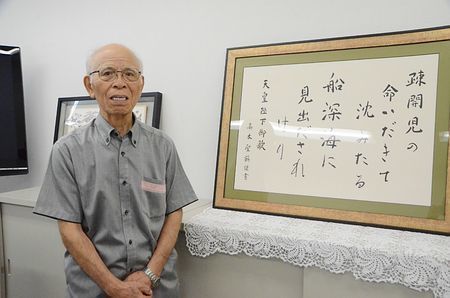 疎開児の
命いだきて
沈みたる
船深海に
見出だされ
けり
天皇陛下御歌
謹書